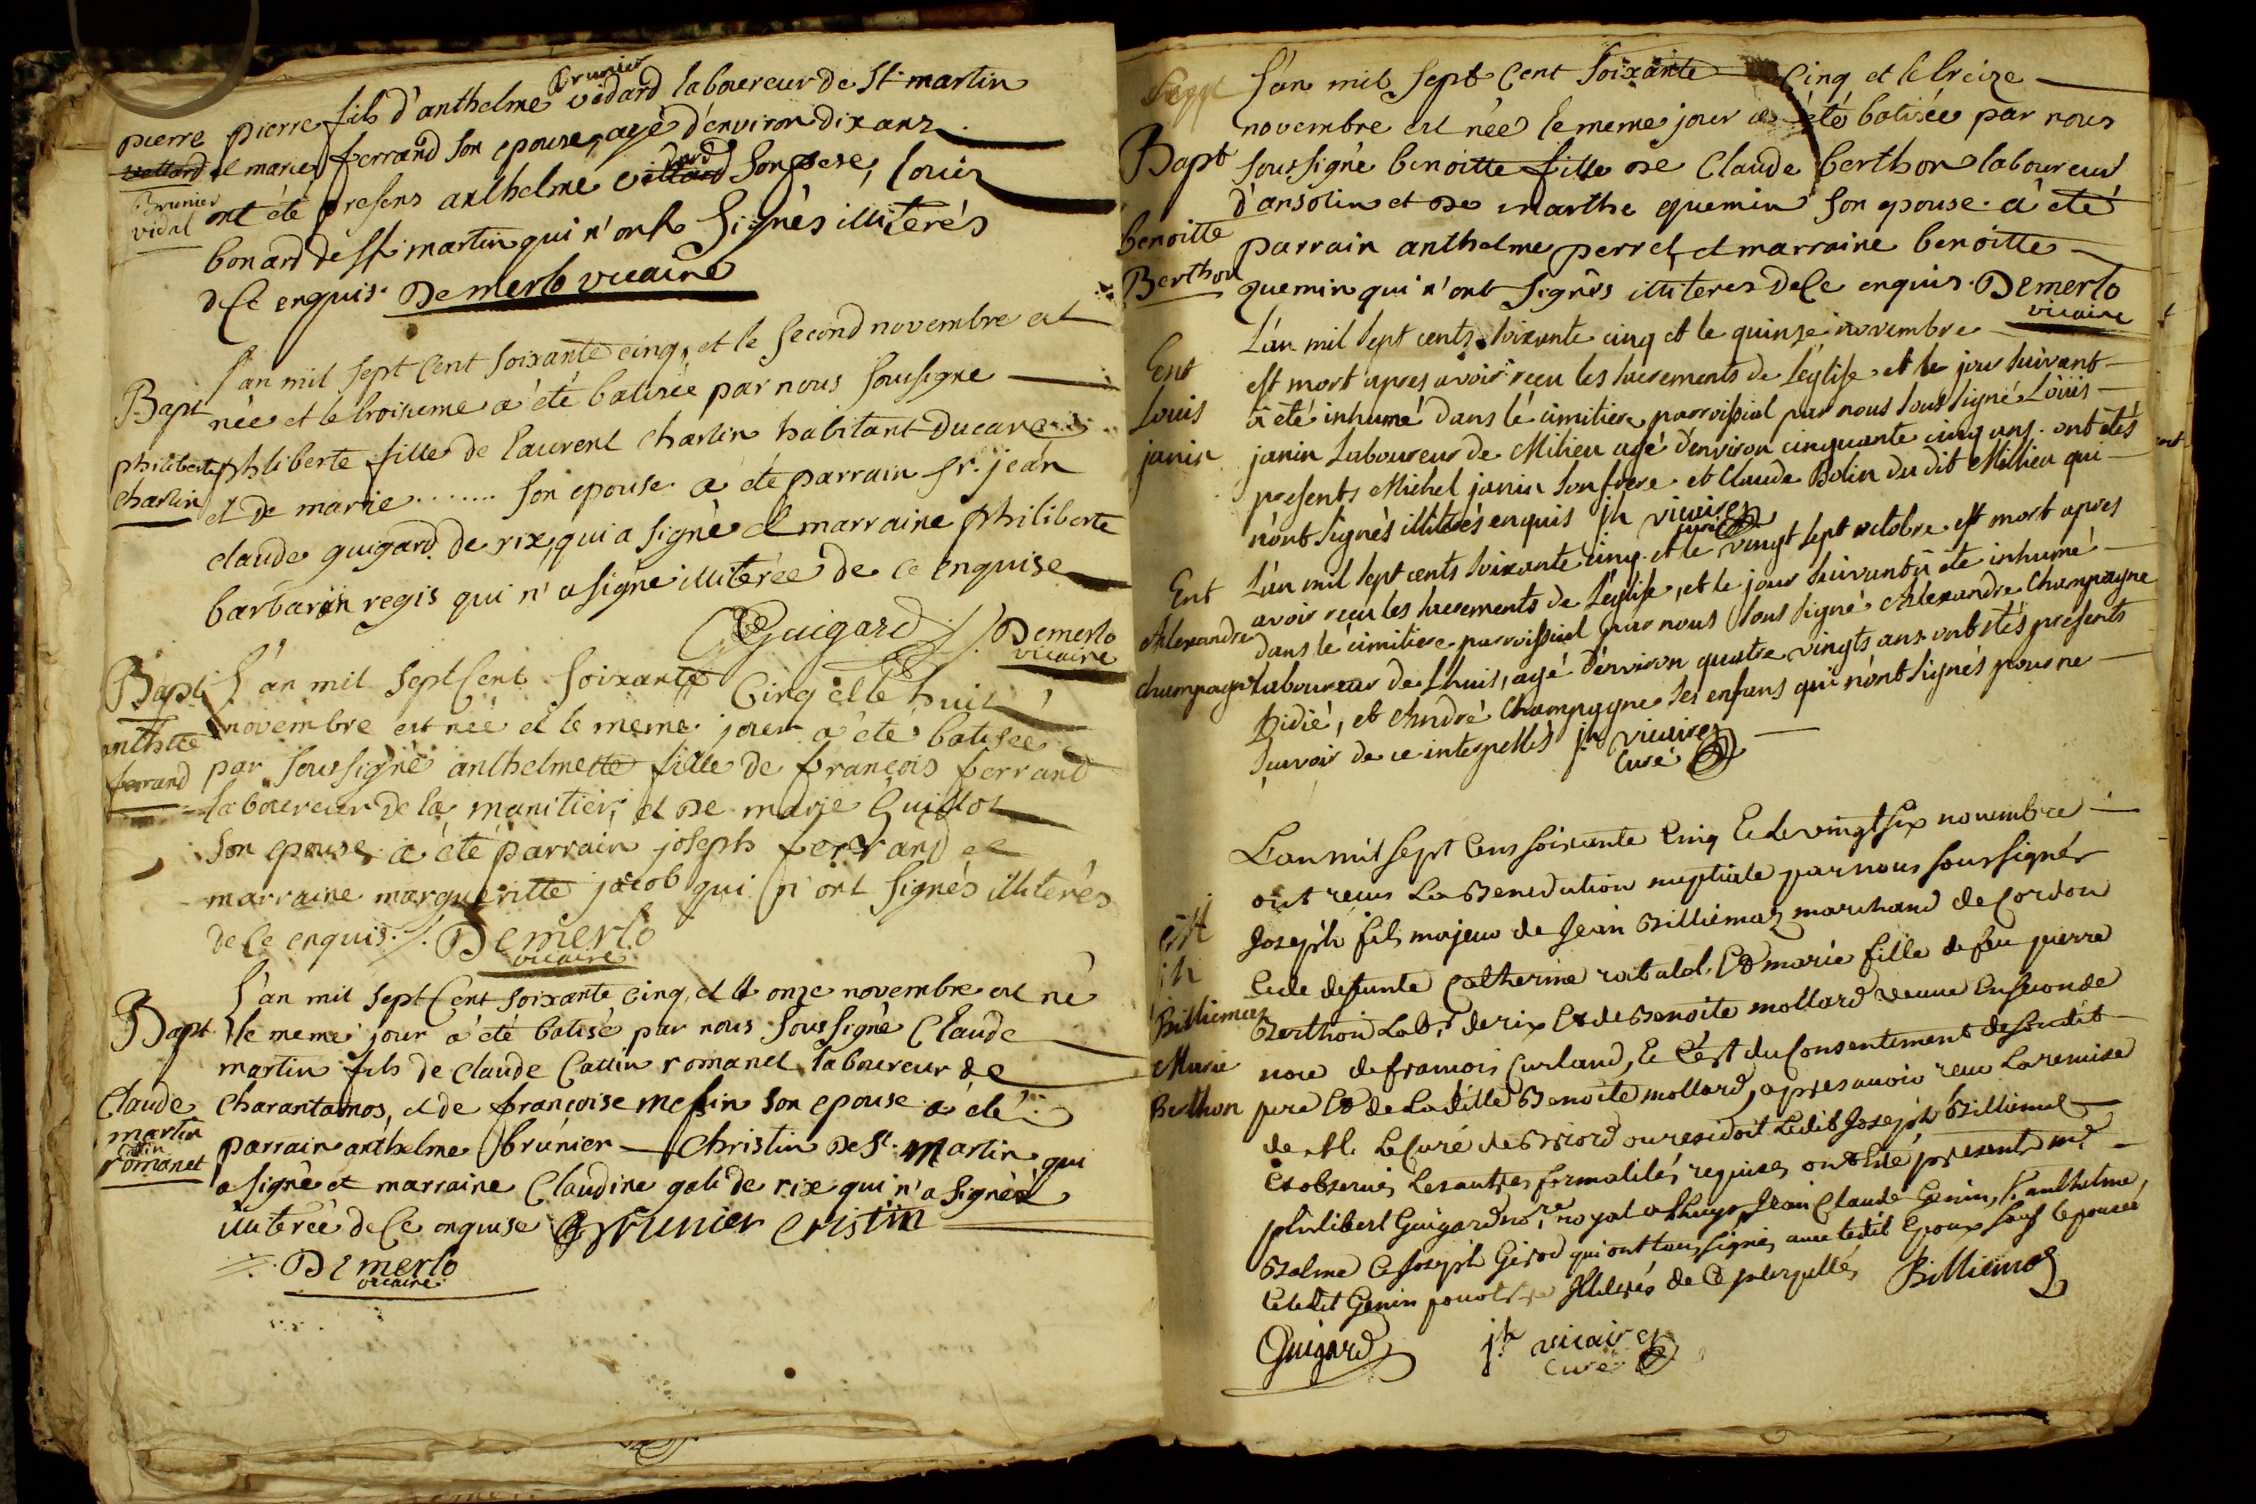 pierre
vallard
Brunier
vidal
Brunier
pierre fils d'anthelme vidard laboureur de St martin
et marie ferrand son epouse, agé d'environ dix ans
ont été presens anthelme son pere, louis
bonard de St martin qui n'ont signés illiterés
de ce enquis. Demerlo vicaire
Bapt
philiberte
charlin
l'an mil sept cent soixante cinq, et le second novembre est
née et le troisieme a été batisée par nous soussigné
philiberte fille de laurent charlin habitant
et de marie ........ son epouse a été parrain sr. jean
claude guigard de rix, qui a signé et marraine philiberte
barbarin regis qui n'a signé illiterée de ce enquise
Guigard Demerlo
vicaire
Bapt
anthtte
ferrand
L'an mil sept cent soixante cinq et le huit
novembre est née et le meme jour a été batisée
par soussigné anthelmette fille de françois ferrand
laboureur de la manitier, et de marie Guillot
son epouse a été parrain joseph ferrand et
marraine margueritte jacob qui n'ont signés illiterés
de ce enquis. Demerlo
vicaire
Bapt
Claude
martin
Cattin
romanet
L'an mil sept cent soixante cinq, et le onze novembre est né
le meme jour a été batisé par nous soussigné Claude
martin fils de claude Cattin romanet laboureur de
charantamos, et de françoise mesin son epouse a été
parrain anthelme brunier Christin de St. martin qui
a signé et marraine Claudine gali de rix qui n'a signé
illiterée de ce enquise Brunier Cristin
Demerlo
vicaire
Bapt
benoitte
Berthon
l'an mil sept cent soixante cinq et le treize
novembre est née le meme jour a été batisée par nous
soussigné benoitte fille de Claude berthon laboureur
d'ansolin et de marthe quemin son epouse. a été
parrain anthelme perret et marraine benoitte
quemin qui n'ont signés illiteres de ce enquis. Demerlo
vicaire
Ent
Louis
janin
L'an mil sept cents soixante cinq et le quinze novembre
est mort apres avoir reçu les sacrements de l'église et le jour suivant
a été inhumé dans le cimitiere parroissial par nous soussigné Loüis
janin Laboureur de Milieu agé d'environ cinquante cinq ans. ont étés
présents Michel janin son frere et Claude Bolin du dit Millieu qui
n'ont signés illiterés enquis jh vicaires
curé
Ent
Alexandre
champagne
L'an mil sept cents soixante cinq et le vingt sept octobre est mort apres
avoir reçu les sacrements de l'église, et le jour suivant a été inhumé
dans le cimitiere parroissial par nous sous signé Alexandre Champagne
Laboureur de Lhuis, agé d'environ quatre vingts ans ont étés présents
Didié, et André Champagne ses enfans qui n'ont signés pour ne
sçavoir de ce interpellés jh vicaires
Curé
Billiemaz
Marie
Berthon
L'an mil sept cens soixante Cinq Et le vingt six novembre
ont reçus La Benediction nuptiale par nous soussignés
Joseph fils majeur de Jean Billiemaz marchand de Cordon
Et de defunte Catherine rabatel. Et marie fille de feu pierre
Berthon Labr. de rix Et de Benoite mollard veuve En seconde
noce de francois Curland, Et C'est du Consentement de Sondit
pere Et de Ladille Benoite mollard, apres avoir reçu La remise
de M. Le Curé de Briord ou residoit Ledit Joseph Billiemaz
Et observés Les autres formalités requises ont Eté presents mr.
philibert Guigard nore. royal a Lhuys, Jean Claude Genin, Sr. anthelme
Balme Et Joseph Girod qui ont tous signés avec Ledit Epoux sauf L'epousée
Et Ledit Genin pour Illiterés de Ce Billiemaz
Guigard jh vicaires
Curé